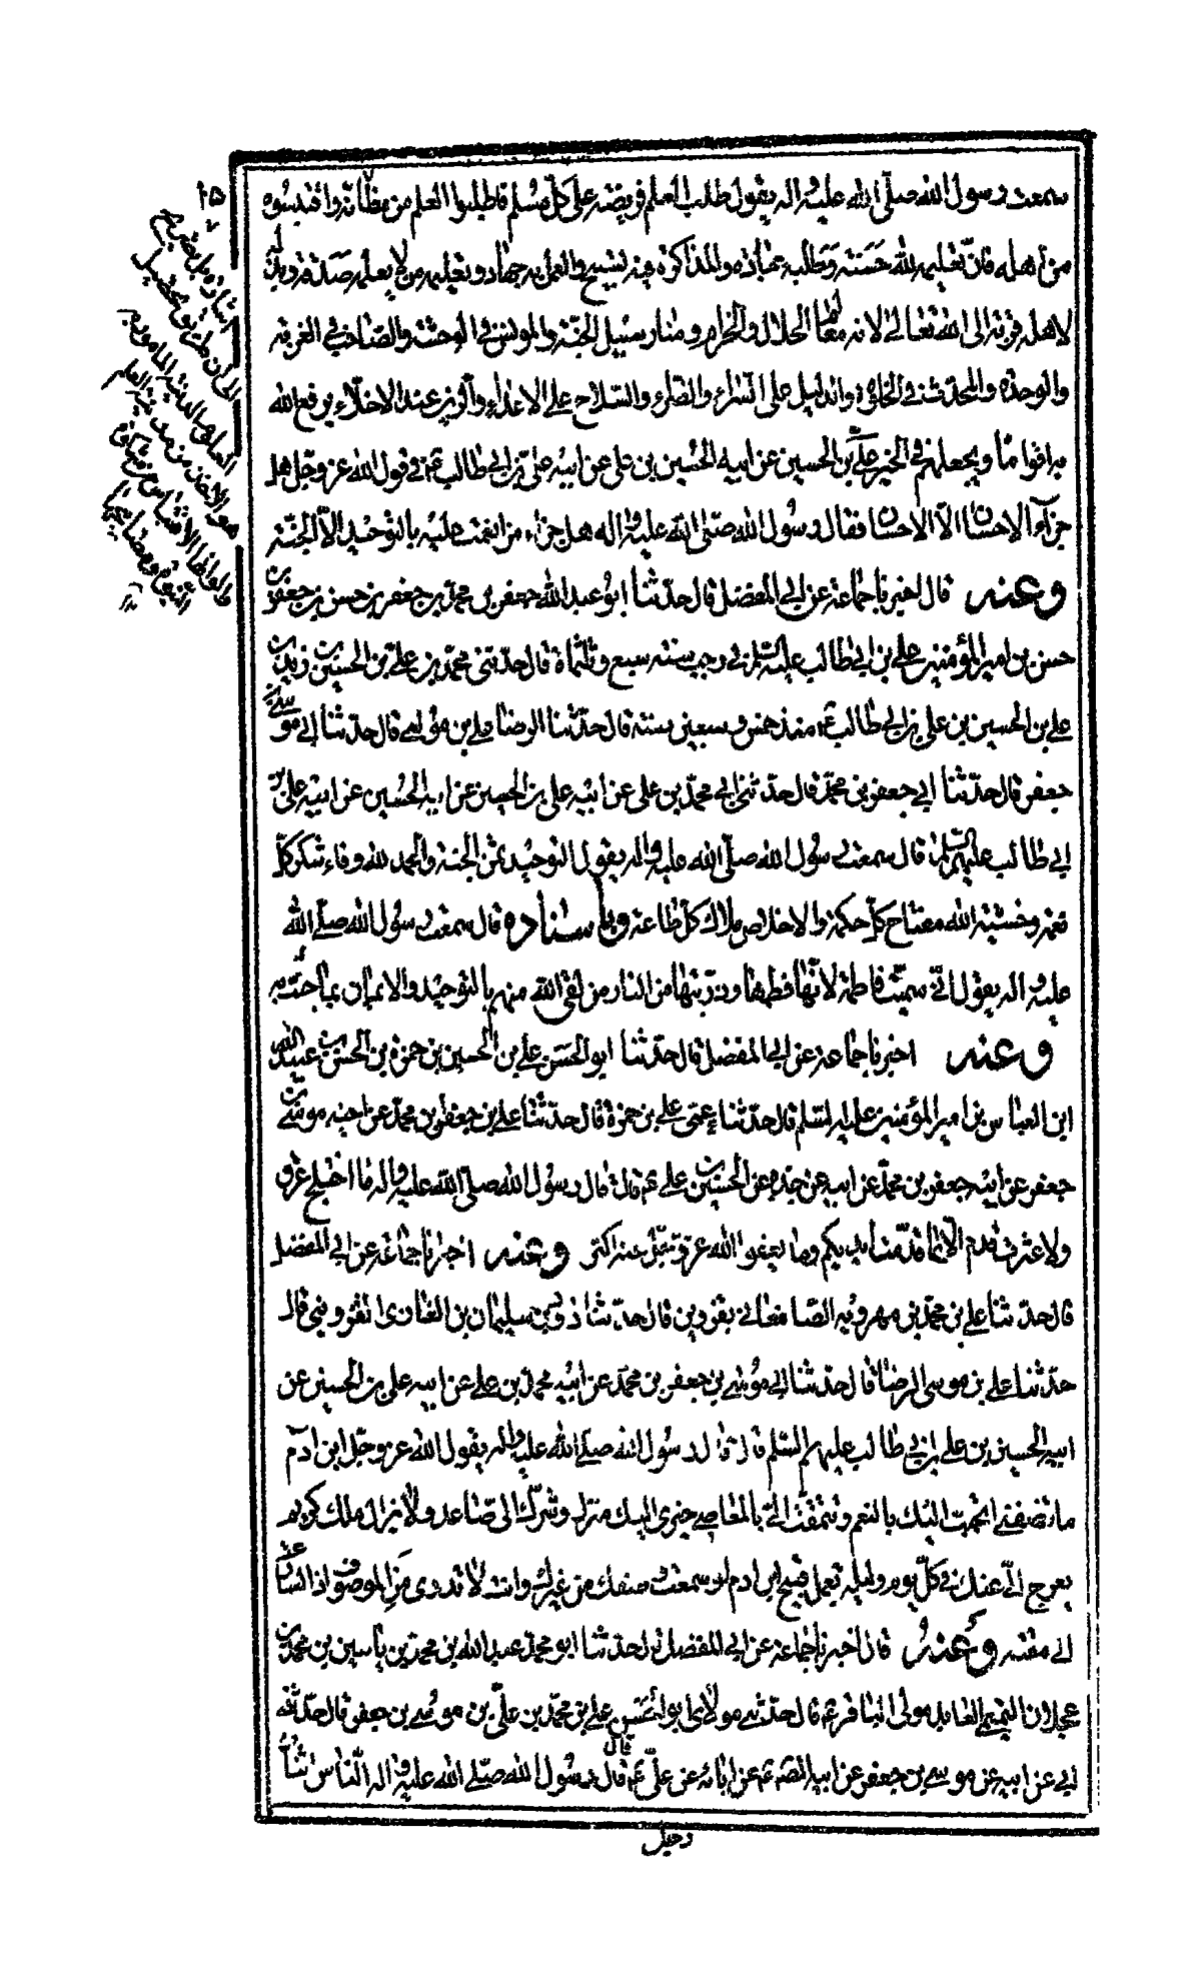 سمعت رسول الله صلّى الله عليه واله يقول طلب العلم فريضة على كلّ مسلم فاطلبوا العلم من مظانّه واقتبسوه
من اهله فانّ تعليمه لله حسنة وطلبه عبادة والمذاكرة فيه تسبيح والعمل به جهاد وتعليمه من لا يعلمه صدقة وبذله
لاهله قربة الى الله تعالى لانه معالم الحلال والحرام ومنار سبيل الجنّة والمونس في الوحشة والصّاحب في الغربة
والوحدة والمحدّث في الخلوة والدليل على السّراء والضّراء والسّلاح على الاعداء والزّين عند الاخلاء يرفع الله
به اقواما ويجعلهم في الخير علي بن الحسين عن ابيه الحسين بن علي عن ابيه علي بن ابي طالب ع في قول الله عز وجل هل
جزاء الاحسان الّا الاحسان فقال رسول الله صلّى الله عليه واله هل جزاء من انعمت عليه بالتوحيد الّا الجنّة
وعنه قال اخبرنا جماعة عن ابي المفضل قال حدّثنا ابو عبد الله جعفر بن محمّد بن جعفر بن حسن بن جعفر بن
حسن بن امير المؤمنين علي بن ابي طالب عليه السّلم في رجب سنة سبع وثلثماة قال حدّثني محمّد بن علي بن الحسين بن زيد بن
علي بن الحسين بن علي بن ابي طالب ع منذ خمس وسبعين سنة قال حدّثنا الرضا علي بن موسى قال حدّثنا ابي موسى بن
جعفر قال حدّثنا ابي جعفر بن محمّد قال حدثني ابي محمّد بن علي عن ابيه علي بن الحسين عن ابيه الحسين عن ابيه علي بن
ابي طالب عليهم السّلم قال سمعت رسول الله صلّى الله عليه واله يقول التوحيد ثمن الجنة والحمد لله وفاء شكر كلّ
نعمة وخشية الله مفتاح كلّ حكمة والاخلاص ملاك كلّ طاعة وباسناده قال سمعت رسول الله صلّى الله
عليه واله يقول انّي سمّيت فاطمة لانّها فطمها وذرّيّتها من النار من لقى الله منهم بالتوحيد والايمان بما جئت به
وعنه اخبرنا جماعة عن ابي المفضل قال حدّثنا ابو الحسن علي بن الحسين بن حمزة بن الحسن بن عبيد الله
ابن العباس بن امير المؤمنين عليه السّلم قال حدّثنا عمّي علي بن حمزة قال حدّثنا علي بن جعفر بن محمّد عن اخيه موسى بن
جعفر عن ابيه جعفر بن محمّد عن ابيه عن جدّه عن الحسين بن علي ع قال قال رسول الله صلّى الله عليه واله ما اختلج عرق
ولا عثرت قدم الّا بما قدّمت ايديكم وما يعفوا الله عز وجل عنه اكثر وعنه اخبرنا جماعة عن ابي المفضل
قال حدّثنا علي بن محمّد بن مهرويه الصّامغاني بقزوين قال حدّثنا داود بن سليمان بن الغازي القزويني قال
حدّثنا علي بن موسى الرضا قال حدّثنا ابي موسى بن جعفر بن محمّد عن ابيه محمّد بن علي عن ابيه علي بن الحسين عن
ابيه الحسين بن علي بن ابي طالب عليهم السّلم قال قال رسول الله صلّى الله عليه واله يقول الله عز وجل ابن ادم
ما تنصفني اتحبّب اليك بالنعم وتتمقّت اليّ بالمعاصي خيري اليك منزل وشرّك الى صاعد ولا يزال ملك كريم
يعرج اليّ عنك في كلّ يوم وليلة بعمل قبيح ابن ادم لو سمعت وصفك من غيرك وانت لا تدري من الموصوف اذا لسارعت
الى مقته وعنه قال اخبرنا جماعة عن ابي المفضل قال حدّثنا ابو محمّد عبد الله بن محمّد بن ياسين بن محمّد بن
عجلان التميمي العابد مولى الباقر ع قال حدّثني مولاي ابو الحسن علي بن محمّد بن علي بن موسى بن جعفر قال حدّثني
ابي عن ابيه عن موسى بن جعفر عن ابيه الصّ ع عن ابائه عن علي ع قال قال رسول الله صلّى الله عليه واله النّاس اثنان
رجل